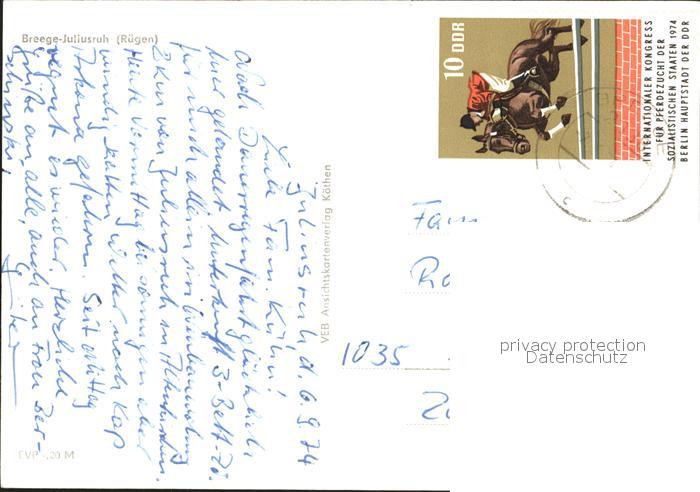 Breege-Juliusruh (Rügen)
Juliusruh d. 6.9.74
Liebe Fam. Kühn!
Nach Dauerregenfahrt glücklich
hier gelandet. Unterkunft 3-Bett-Zi.
für mich allein in
2 km von Juliusruh in Altenkirchen.
Heute Vormittag bei sonnigem aber
windig kalten Wetter nach Kap
Arkona gefahren. Seit Mittag
regnet es wieder. Herzliche
Grüße an alle, auch an Frau Ber-
EVP -,20 M
VEB Ansichtskartenverlag Köthen
10 DDR
INTERNATIONALER KONGRESS
FÜR PFERDEZUCHT DER
SOZIALISTISCHEN STAATEN 1974
BERLIN HAUPTSTADT DER DDR
Fam
1035
privacy protection
Datenschutz